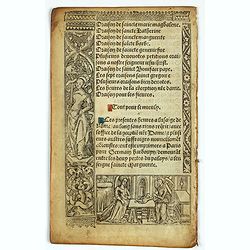 Oraison de saincte marie magdalene.
Oraison de saincte katherine
Oraison de saincte marguerite
Oraison de saicte barbe.
Oraison de saicte geneuiefue
Plusieurs deuotes petitions et oraisõs
a nostre seigneur iesuscrist.
Oraison de sainct pape.
Les sept oraisons sainct gregoire
Plusieurs oraisons bien deuotes.
Les heures de la cõception nře dame.
Oraison pour les fieures.
Tout pour le mieulx.
Ces presentes heures a lusaige de
au long sans riens reqr̃ir: auec
office de la cõceptiõ nře Dame &
Et ont este imprimees a Paris
pour Germain hardouyn: demourãt
entre les deux portes du palays: a lensei
gne saincte Marguerite.